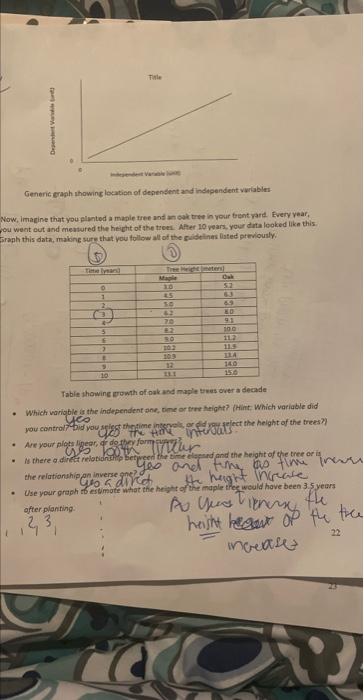 Title
Dependent Variable (unit)
0
0
Independent Variable (unit)
Generic graph showing location of dependent and independent variables
Now, imagine that you planted a maple tree and an oak tree in your front yard. Every year,
you went out and measured the height of the trees. After 10 years, your data looked like this.
Graph this data, making sure that you follow all of the guidelines listed previously.
Time (years) Tree Height (meters)
Maple Oak
0 3.0 5.2
1 4.5 6.3
2 5.0 6.9
3 6.2 8.0
4 7.0 9.1
5 8.2 10.0
6 9.0 11.2
7 10.2 11.9
8 10.9 13.4
9 12 14.0
10 13.1 15.0
Table showing growth of oak and maple trees over a decade
• Which variable is the independent one, time or tree height? (Hint: Which variable did
yes
you control? Did you select the time intervals, or did you select the height of the trees?)
yes the time intervals.
• Are your plots linear, or do they form curves?
yes both linear
• Is there a direct relationship between the time elapsed and the height of the tree or is
yes and time as time
the relationship an inverse one?
yes a direct the height increase
• Use your graph to estimate what the height of the maple tree would have been 3.5 years
after planting.
As years the
height of the tree
increases
22
23